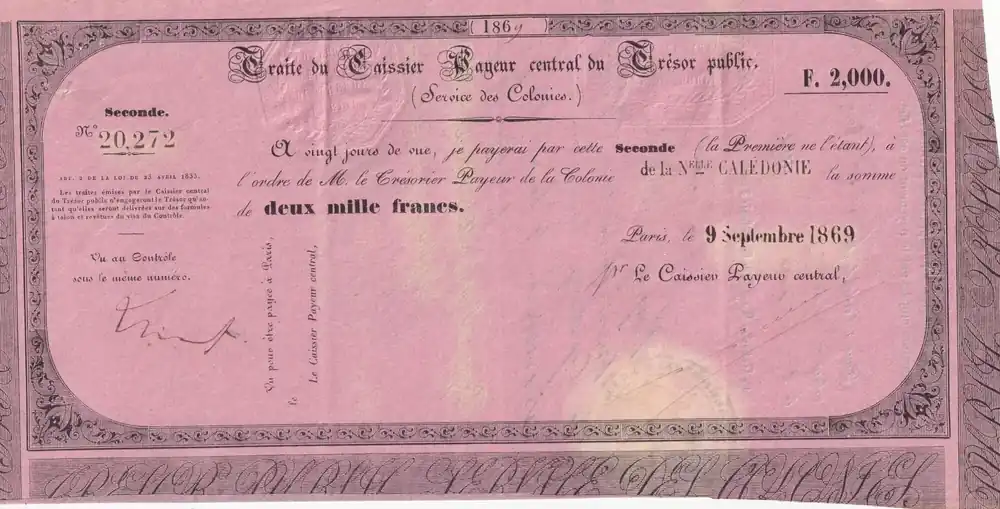 1869
Traite du Caissier Payeur central du Trésor public.
(Service des Colonies.)
F. 2,000.
Seconde.
N° 20,272
ART. 2 DE LA LOI DU 23 AVRIL 1833.
Les traites émises par le Caissier central
du Trésor public n'engageront le Trésor qu'au-
tant qu'elles seront délivrées sur des formules
à talon et revêtues du visa du Contrôle.
Vu au Contrôle
sous le même numéro.
A vingt jours de vue, je payerai par cette Seconde (la Première ne l'étant), à
l'ordre de M. le Trésorier Payeur de la Colonie de la Nelle CALÉDONIE la somme
de deux mille francs.
Paris, le 9 Septembre 1869
pr Le Caissier Payeur central,
Vu pour être payée à Paris,
le
Le Caissier Payeur central,